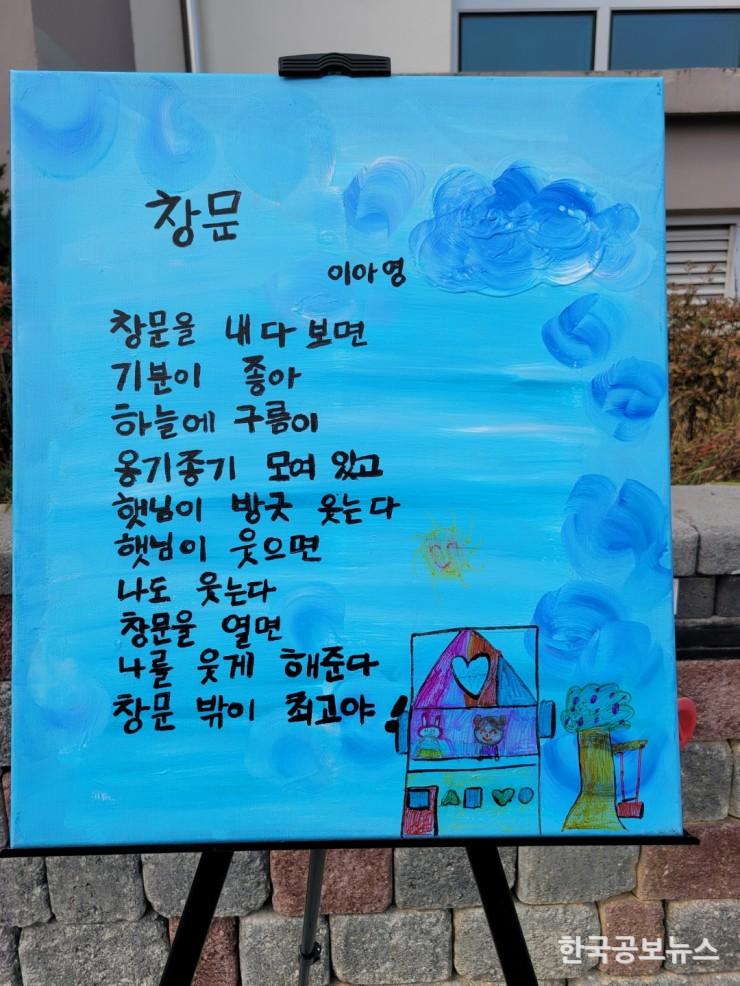 창문
이아영
창문을 내다 보면
기분이 좋아
하늘에 구름이
옹기종기 모여 있고
햇님이 방긋 웃는다
햇님이 웃으면
나도 웃는다
창문을 열면
나를 웃게 해준다
창문 밖이 최고야!
한국공보뉴스